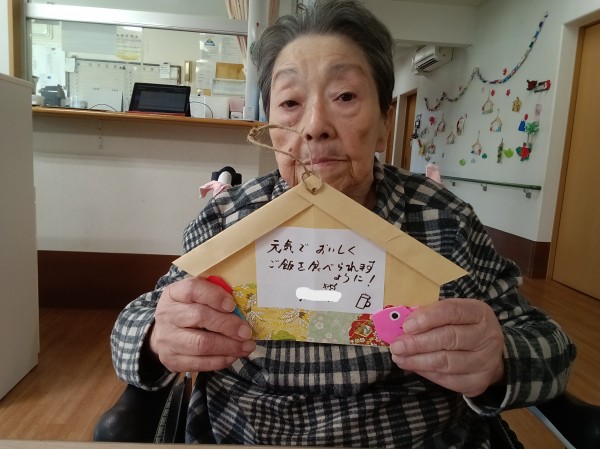 元気で おいしく
ご飯を食べられます
ように!